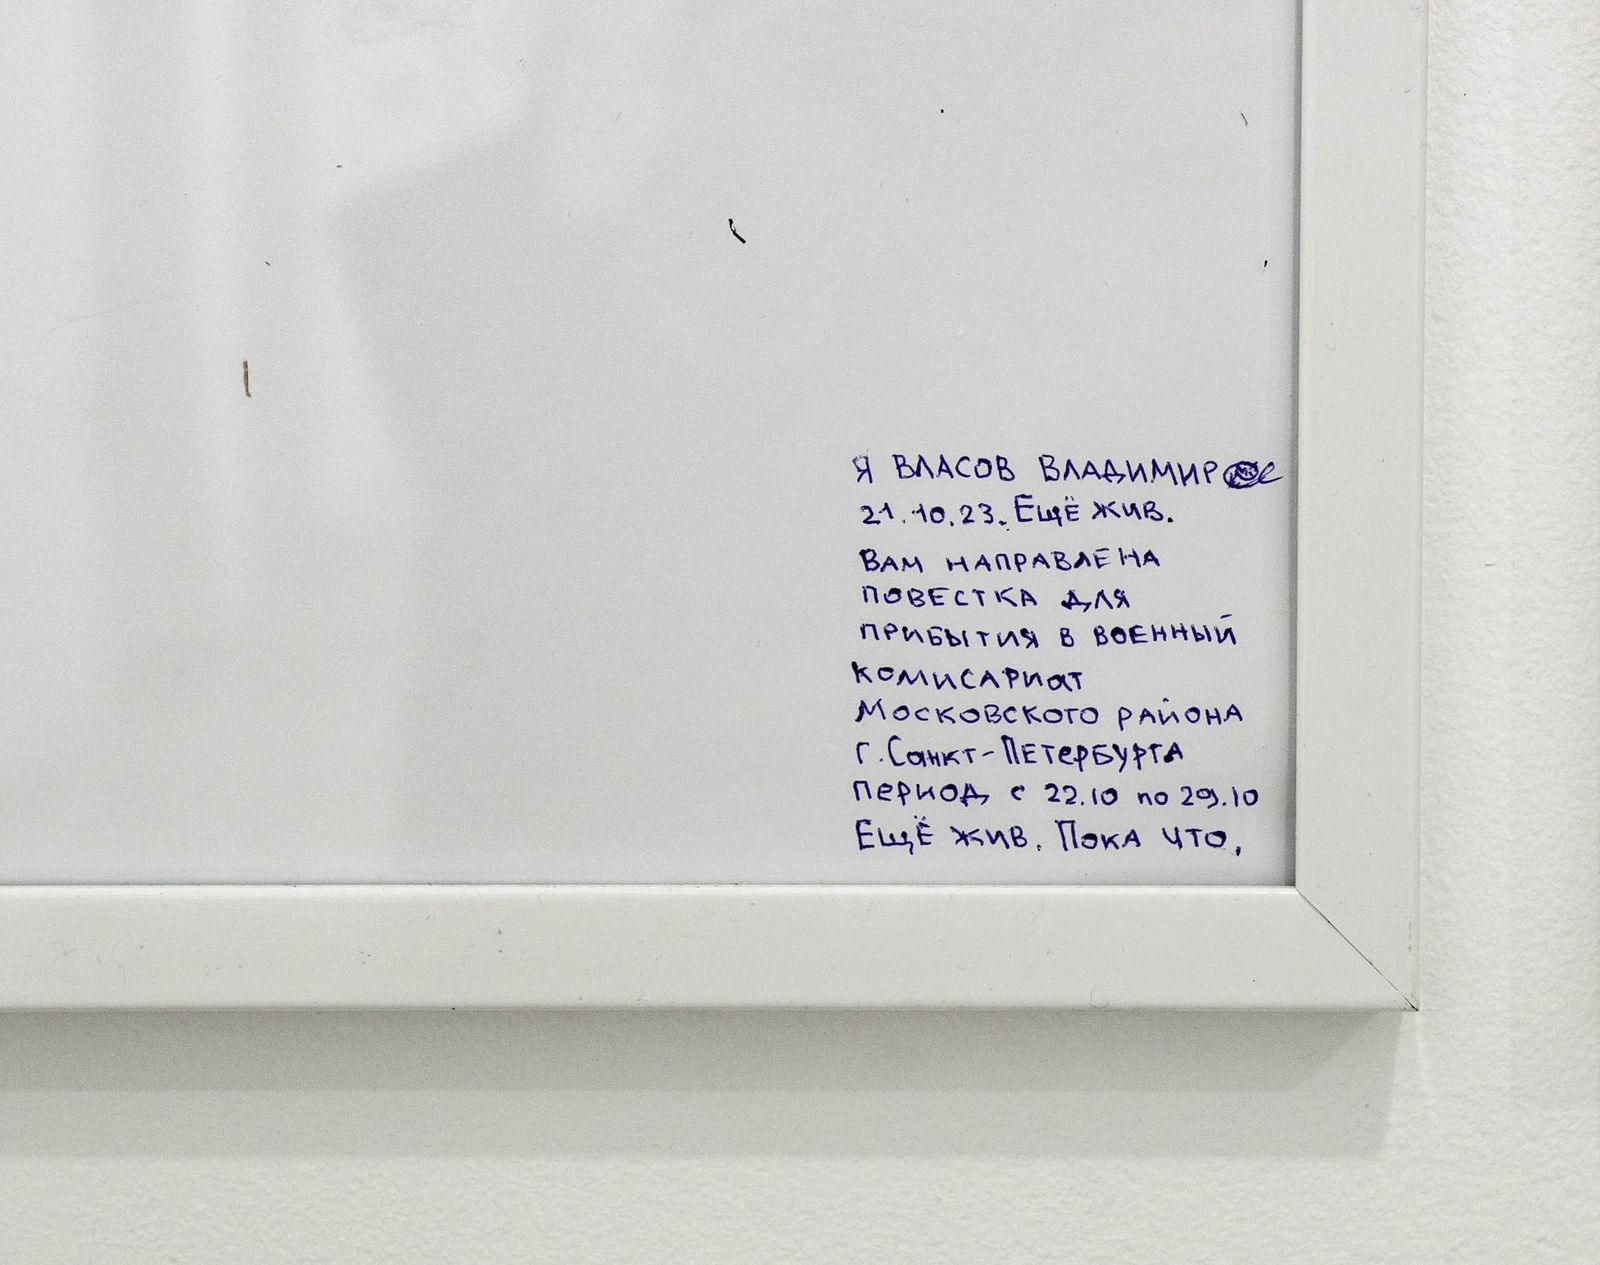 Я ВЛАСОВ ВЛАДИМИР
21.10.23. ЕЩЁ ЖИВ.
ВАМ НАПРАВЛЕНА
ПОВЕСТКА ДЛЯ
ПРИБЫТИЯ В ВОЕННЫЙ
КОМИСАРИАТ
МОСКОВСКОГО РАЙОНА
г. САНКТ-ПЕТЕРБУРГА
ПЕРИОД С 22.10 ПО 29.10
ЕЩЁ ЖИВ. ПОКА ЧТО,